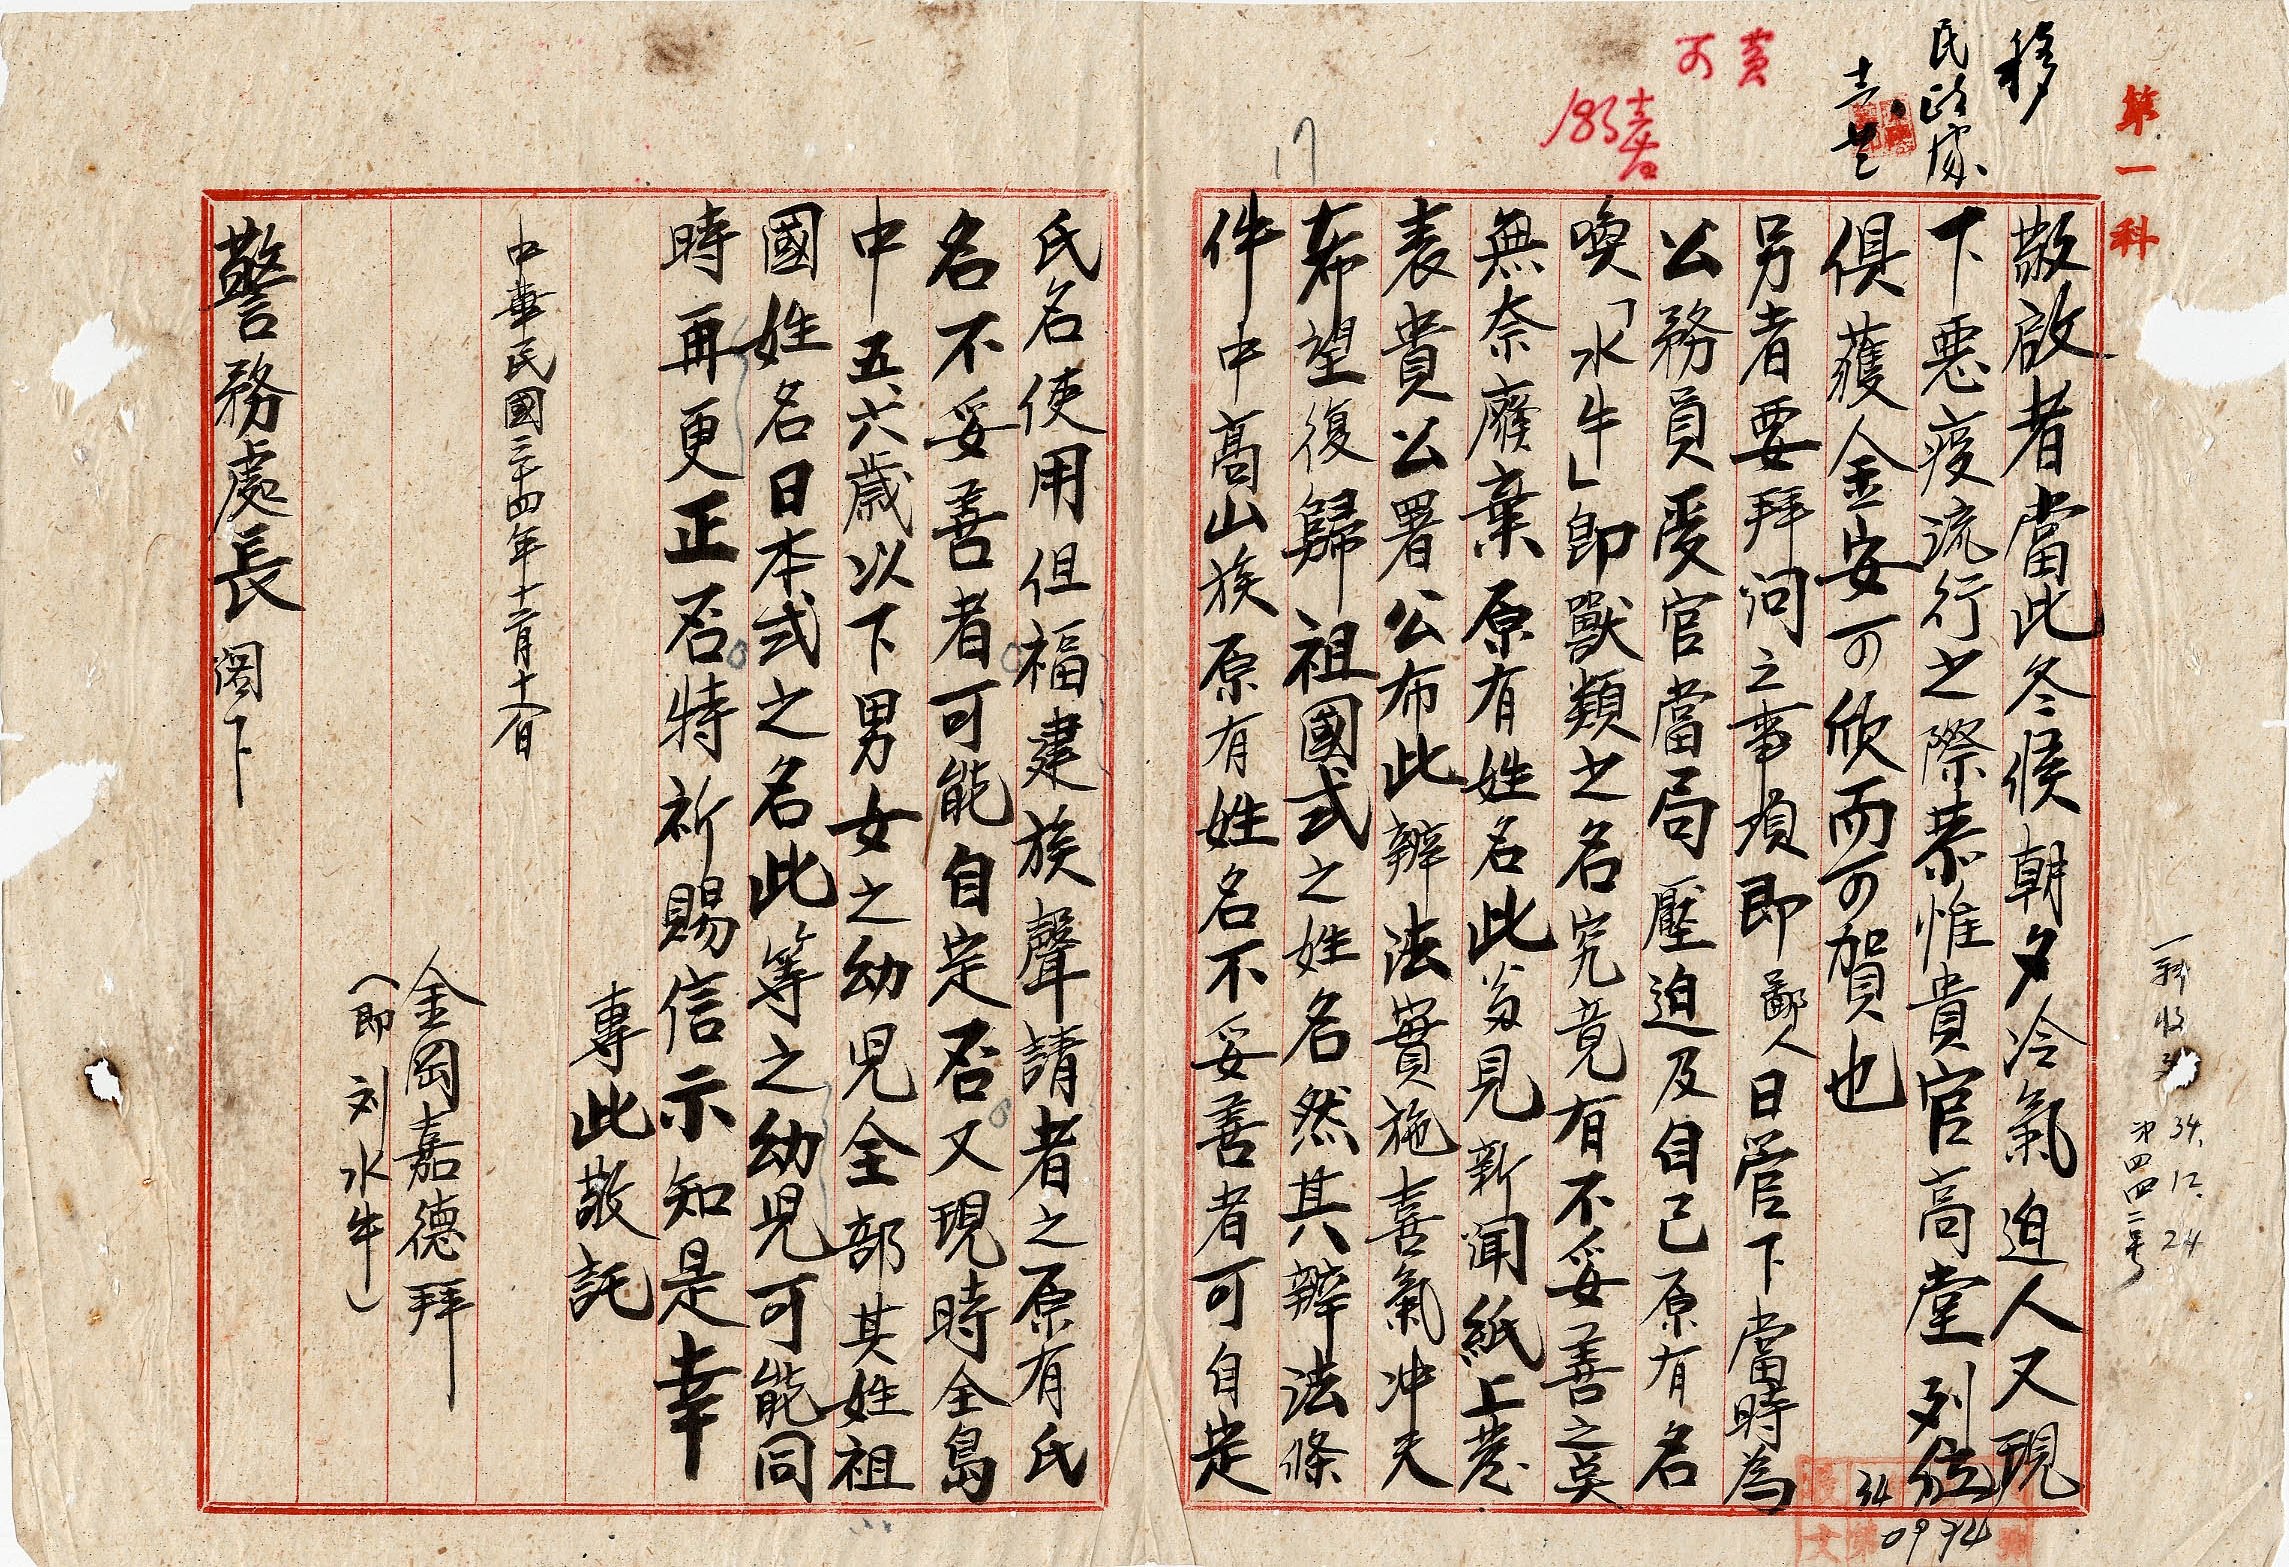 第一科
移
民政處
敬啟者當此冬候朝夕冷氣迫人又現
下惡疫流行之際恭惟貴官高堂列位
俱蘐金安可欣而可賀也
另者要拜问之事項即鄙人日管下當時為
公務員受官當局壓迫及自己原有名
喚「水牛」即獸類之名究竟有不妥善之莫
無奈廢棄原有姓名此爻見新闻紙上發
表貴公署公布此辨法實施喜氣冲天
希望復歸祖國式之姓名然其辨法條
件中高山族原有姓名不妥善者可自定
氏名使用但福建族聲請者之原有氏
名不妥善者可能自定否又現時全島
中五、六歲以下男女之幼児全部其姓祖
國姓名日本式之名此等之幼児可能同
時再更正否特祈賜信示知是幸
專此敬託
中華民國三十四年十二月十八日
金岡嘉德拜
(即刘水牛)
警務處長閣下
黄
可
17
34.12.24
第四四二号
34
0974